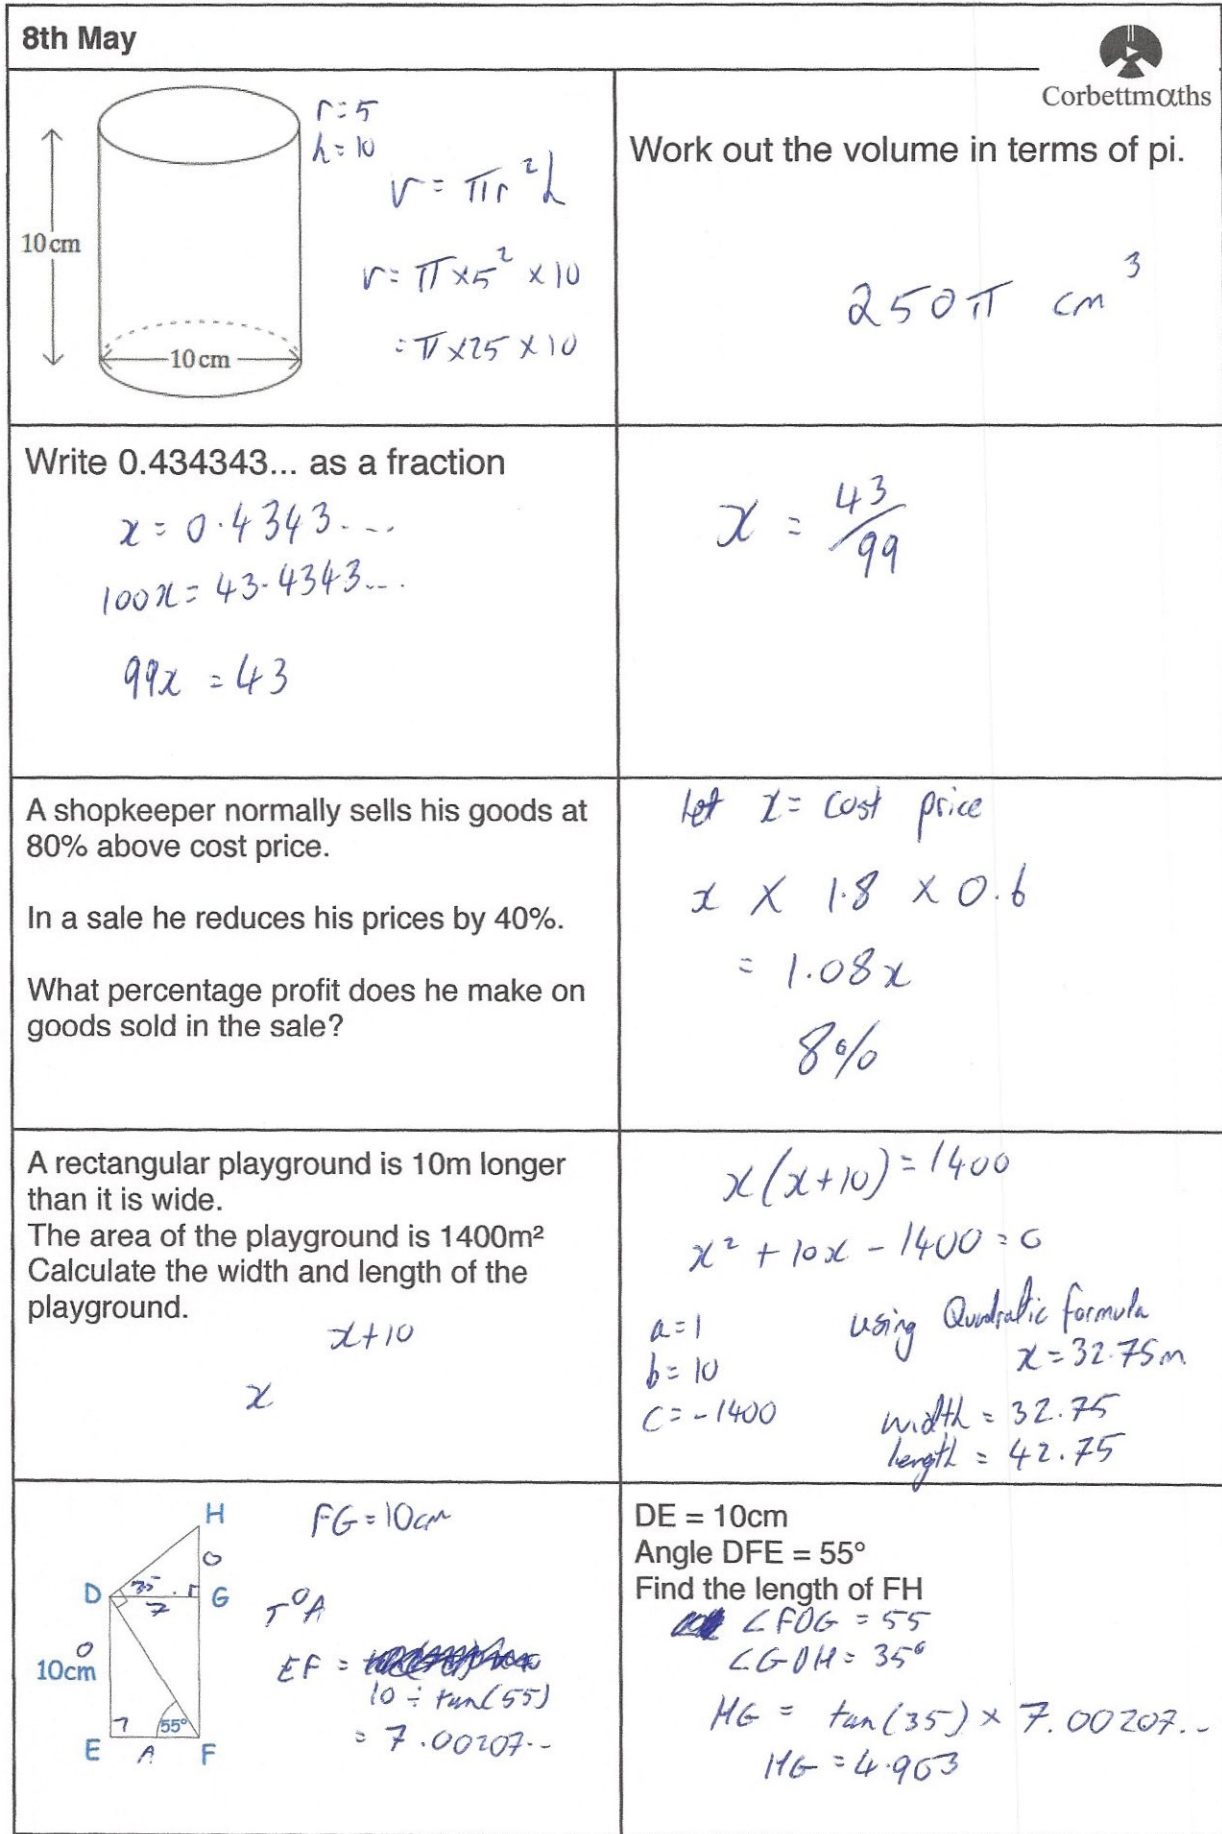 8th May
Corbettmαths
10 cm
10 cm
r = 5
h = 10
v = πr²h
v = π × 5² × 10
= π × 25 × 10
Work out the volume in terms of pi.
250π cm³
Write 0.434343... as a fraction
x = 0.4343....
100x = 43.4343....
99x = 43
x = 43/99
A shopkeeper normally sells his goods at
80% above cost price.
In a sale he reduces his prices by 40%.
What percentage profit does he make on
goods sold in the sale?
Let x = cost price
x × 1.8 × 0.6
= 1.08x
8%
A rectangular playground is 10m longer
than it is wide.
The area of the playground is 1400m²
Calculate the width and length of the
playground.
x+10
x
x(x+10) = 1400
x² + 10x - 1400 = 0
a = 1
b = 10
c = -1400
using Quadratic formula
x = 32.75m
width = 32.75
length = 42.75
H
O
D
35
7
G
O
10cm
55°
E
A
F
FG = 10cm
TOA
EF =
10 ÷ tan(55)
= 7.00207..
DE = 10cm
Angle DFE = 55°
Find the length of FH
∠FDG = 55
∠GDH = 35°
HG = tan(35) × 7.00207..
HG = 4.903